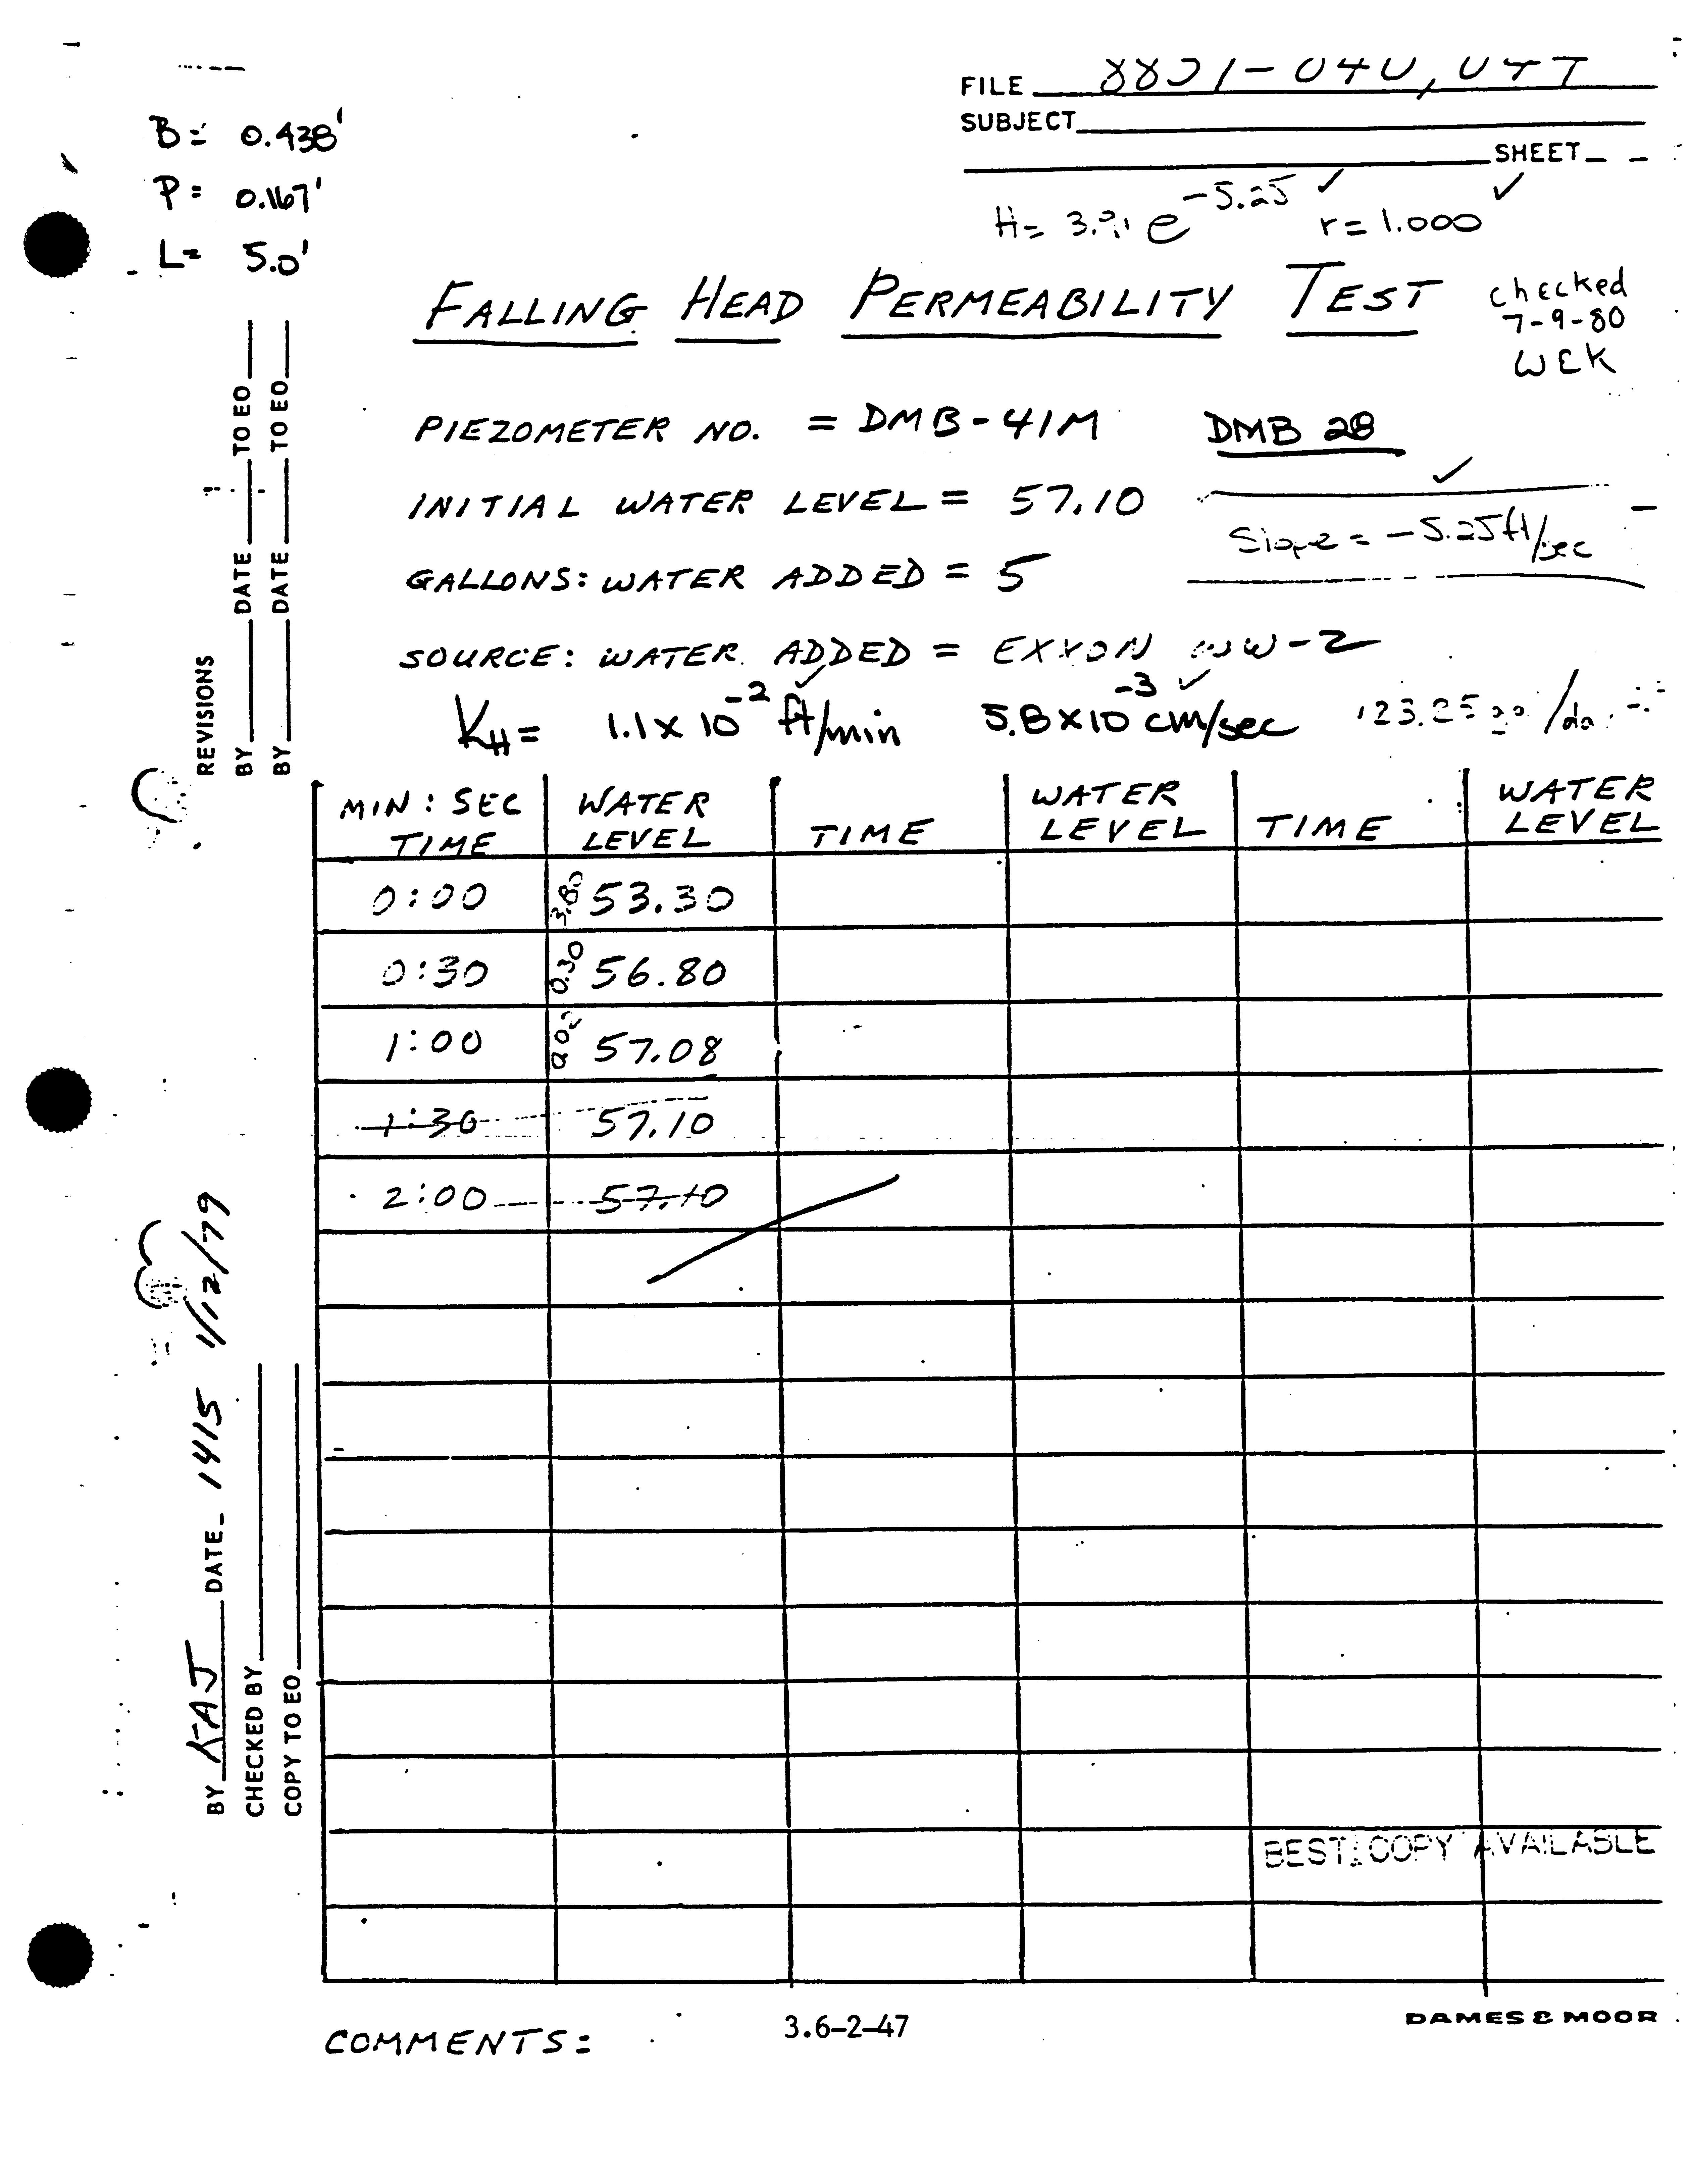 FILE
SUBJECT
SHEET
B = 0.438'
P = 0.167'
L = 5.0'
H = e -5.25 ✓ r = 1.000 ✓
FALLING HEAD PERMEABILITY TEST
checked
7-9-80
WEK
PIEZOMETER NO. = DMB-41M DMB 28
INITIAL WATER LEVEL = 57.10 ✓
Slope = -5.25 ft/sec
GALLONS: WATER ADDED = 5
SOURCE: WATER ADDED = EXXON WW-2
KH = 1.1 x 10 -2 ✓ ft/min 5.8 x 10 -3 ✓ cm/sec
MIN : SEC TIME WATER LEVEL TIME WATER LEVEL TIME WATER LEVEL
0:00 3.80 53.30
0:30 0.30 56.80
1:00 0.02 57.08
1:30 57.10
2:00 57.10
REVISIONS
BY DATE TO EO
BY DATE TO EO
BY KAJ DATE 1415 1/12/79
CHECKED BY
COPY TO EO
BEST COPY AVAILABLE
COMMENTS:
3.6-2-47
DAMES & MOOR